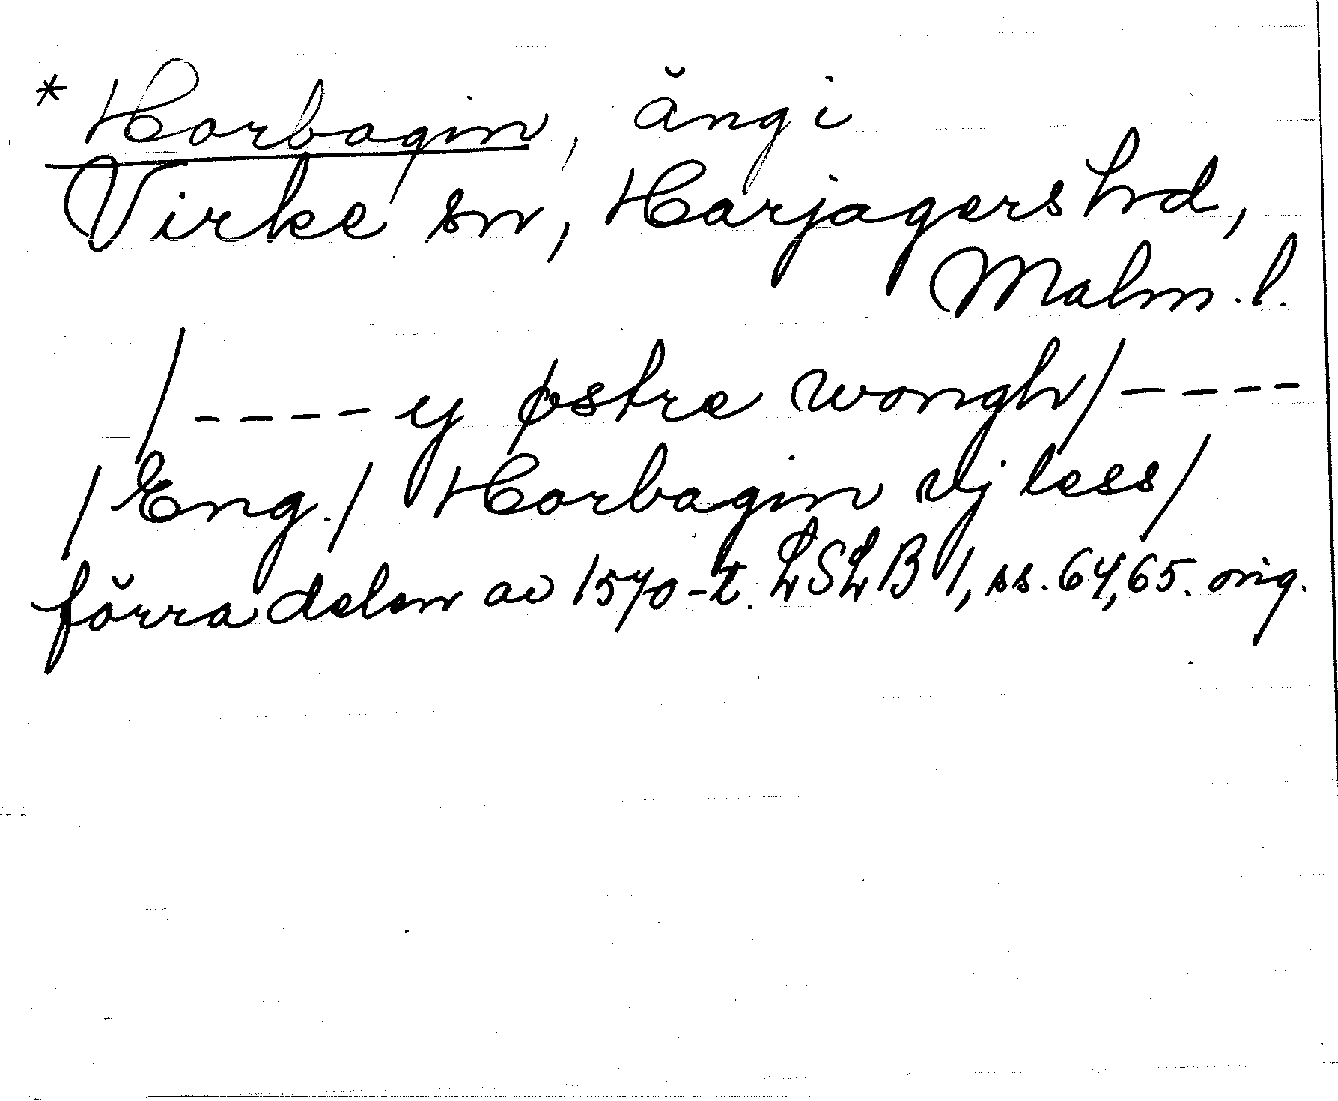 * Horbagin, äng i
Virke sn, Harjagers hrd,
Malm. l.
/---- y østre wongh/----
/Eng./ Horbagin vj less/
förra delen av 1570-t. LSLB 1, ss. 64,65. orig.